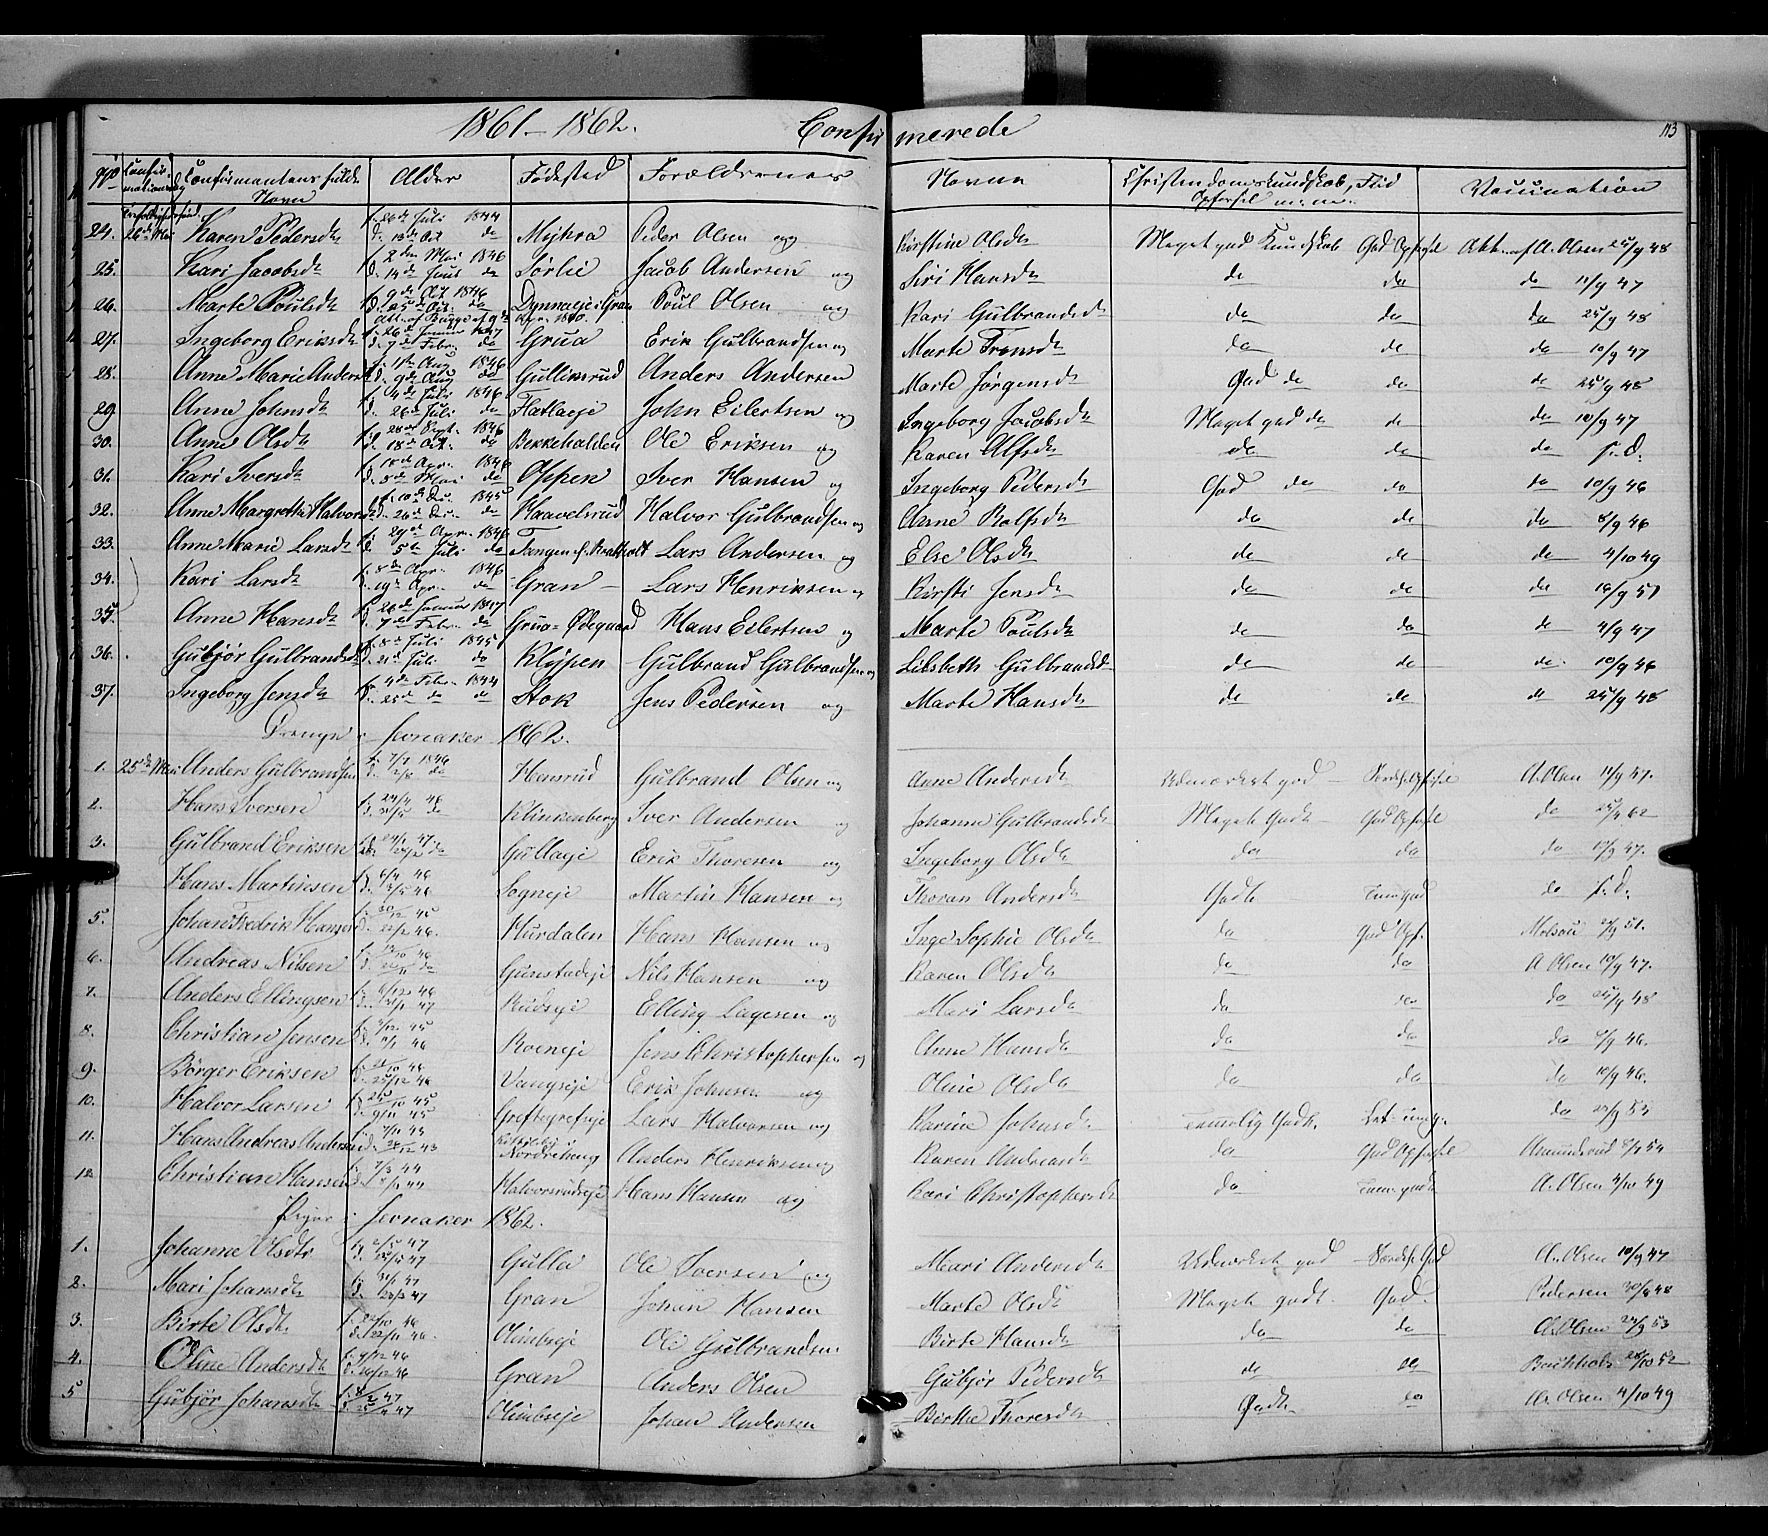 1861–1862. Confirmerede 113
No Confirmationsdag Confirmantens fulde Navn Alder Fødested Forældrenes Navne Christendomskundskab, Flid Opførsel m.m. Vaccination
24. 26de Mai Karen Pedersdtr f. 26de Juli 1844 d. 13de Oct do Myhra Peder Olsen og Kirstine Olsdtr Meget god Kundskab God Opførsel Att. af A. Olsen 25/9 48
25. Kari Jacobsdtr f. 2den Mai 1846 d. 14de Juni do Sørlie Jacob Andersen og Siri Hansdtr do do do 11/9 47
26. Marte Poulsdtr f. 9de Oct 1846 d. 25de Oct. do Dynnaeje i Gran Poul Olsen og Kari Gulbrandsdtr do do do 25/9 48
27. Ingeborg Eriksdtr f. 26de Januar 1847 d. 7de Febr. do Grua Erik Gulbrandsen og Marte Fransdtr do do do 10/9 47
28. Anne Marie Andersdtr f. 1ste Aug 1846 d. 9de Aug do Gulliksrud Anders Andersen Marte Jørgensdtr God do do do 25/9 48
29. Anne Johnsdtr f. 4de Juli 1846 d. 26de Juli do Flatlaeje John Eilertsen og Ingeborg Jacobsdtr Meget god do do do 10/9 47
30. Anne Olsdtr f. 28de Sept. 1846 d. 18de Oct. do Bekkehalden Ole Eriksen og Karen Alfsdtr do do do s.d.
31. Kari Iversdtr f. 18de Apr. 1846 d. 3de Mai do Oppen Iver Hansen og Ingeborg Pedersdtr God do do do 10/9 46
32. Anne Margrethe Halvorsd f. 10de Dec. 1845 d. 26de Dec. do Haavelsrud Halvor Gulbrandsen og Anne Rolfsdtr do do do 8/9 46
33. Anne Marie Larsdtr f. 29de Apr. 1846 d. 5te Juli do Tangen Lars Andersen og Else Olsdtr do do do 4/10 49
34. Kari Larsdtr f. 8de Apr. 1846 d. 19de Apr. do Gran Lars Henriksen og Kirsti Jensdtr do do do 18/9 51
35. Anne Hansdtr f. 26de Januar 1847 d. 7de Febr. do Grua-Ødegaard Hans Eilertsen og Marte Poulsdtr do do do 4/9 47
36. Gubjør Gulbrandsdtr f. 8de Juli 1845 d. 21de Juli do Klypen Gulbrand Gulbrandsen og Lisbeth Gulbrandsd do do do 10/9 46
37. Ingeborg Jensdtr f. 4de Febr. 1844 d. 25de do do Hok Jens Pedersen og Marte Hansdtr do do do 25/9 48
Drenge i Jevnaker 1862.
1. 25de Mai Anders Gulbrandsen f. 7/7 1846 d. 2/8 do Hensrud Gulbrand Olsen og Anne Andersdtr Udmærket god Særdeles A. Olsen 11/9 47.
2. Hans Iversen f. 24/4 46 do Klinkenberg Iver Andersen og Johanne Gulbrandsdtr Meget Godt God Opførsel do
3. Gulbrand Eriksen 47 do Gullaeje Erik Thoresen og Ingeborg Olsdtr do do do 47.
Hans Martinsen f. 6/4 46 46 Sogneje Martin Hansen og Thoran Andersdtr Godt do s.d.
5. Johan Fredrik Hansen f. 20/12 45 46. Hurdalen Hans Hansen og Inge Sophie Olsdtr do God Opf. 51.
6. Andreas Nilsen 46 do Gunstadeje Nils Hansen og Karen Olsdtr do do A. Olsen 10/9 47.
7. Anders Ellingsen 46 47 Rudseje Elling Lagesen og Mari Larsdtr do do do 25/9 48
8. Christian Jensen 45 46 Roeneje Jens Christophersen og Anne Hansdtr do do do 46.
9. Børger Eriksen 46 d. 25/12 46 Vangseje Erik Johnsen og Oline Olsdtr do do do 10/9 46.
10. Halvor Larsen 45 45 Greftegrefseje Lars Halvorsen og Karine Johnsdtr Temmelig Godt. do 53
11. Hans Andreas Andersen 43 43 Nordreheng Anders Henriksen og Karen Andreasdtr do God Opførsel 54
12. Christian Hansen 7/3 44 44 Halvorsrudseje Hans Hansen og Kari Christophersd do Tem. godt A. Olsen 4/10 49
Piger i Jevnaker 1862.
1. Johanne Olsdtr 47 47 Gulla Ole Iversen og Mari Andersdtr Udmærket god Særdeles God A. Olsen 10/9 47
2. Mari Johansdtr 47 47 Gran Johan Hansen Marte Olsdtr Meget godt. God. Pedersen 48
3. Birte Olsdtr 46 f. 22/11 46. Olimbyeje Ole Gulbrandsen Birte Hansdtr do do A. Olsen 24/9 53
4. Oline Andersdtr 46 46 Gran Anders Olsen Gubjør Pedersdtr do do 28/10 52
5 Gubjør Johansdtr 47 47 Olimbyeje Johan Andersen Birthe Thoresdtr Godt do A. Olsen 4/10 49